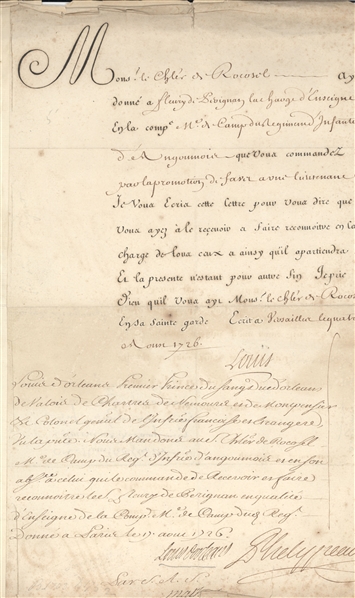 Mons.r le Ch.lier de Rocosel Ay
donné a fleury de Perignan la charge d'Enseigne
En la comp.e M.e de Camp du Regiment Infanterie
d'Angoumois que vous commandez
par la promotion de a une lieutenance
Je Vous Ecris cette lettre pour vous dire que
vous ayez à le recevoir & faire reconnoitre en la
charge de tous ceux & ainsy qu'il apartiendra
Et la presente n'estant pour autre fin Je prie
Dieu qu'il vous ayt Mons.r le Ch.lier de Rocosel
En sa sainte garde Ecrit a Versailles le
Aoust 1726.
Louis
Louis d'orleans Premier Prince du sang duc d'orleans
de Valois de Chartres de Nemours et de Montpensier
Colonel general de l'Infrie francaise et etrangere
Vu la Nous Mandons au Ch.lier de Rocosel
M.e de Camp du Reg.t d'Infrie d'angoumois et en son
abs.ce à celuy qui le commande de Recevoir et faire
reconnoitre le S. fleury de Perignan en qualité
d'Enseigne de la Comp.e M.e de Camp dud. Reg.t
Donné a Paris le 17 aout 1726.
Louis d'orleans
Par S. A. S.